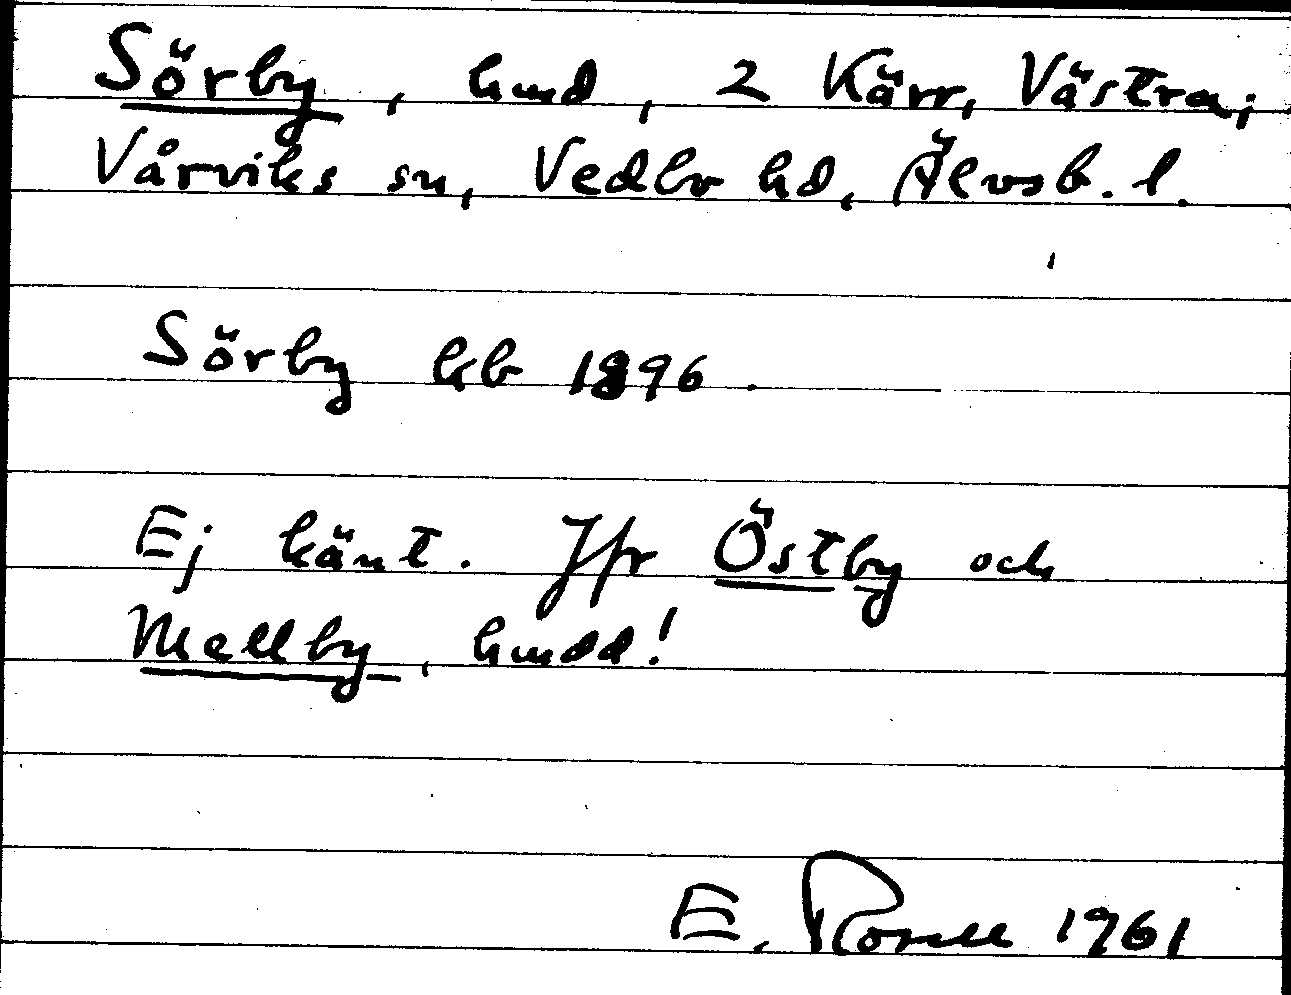 Sörby, hmd, 2 Kärr, Västra;
Vårviks sn, Vedbo hd, Älvsb. l.
Sörby kb 1896.
Ej känt. Jfr Östby och
Mellby, hmdd!
E. Rosell 1961